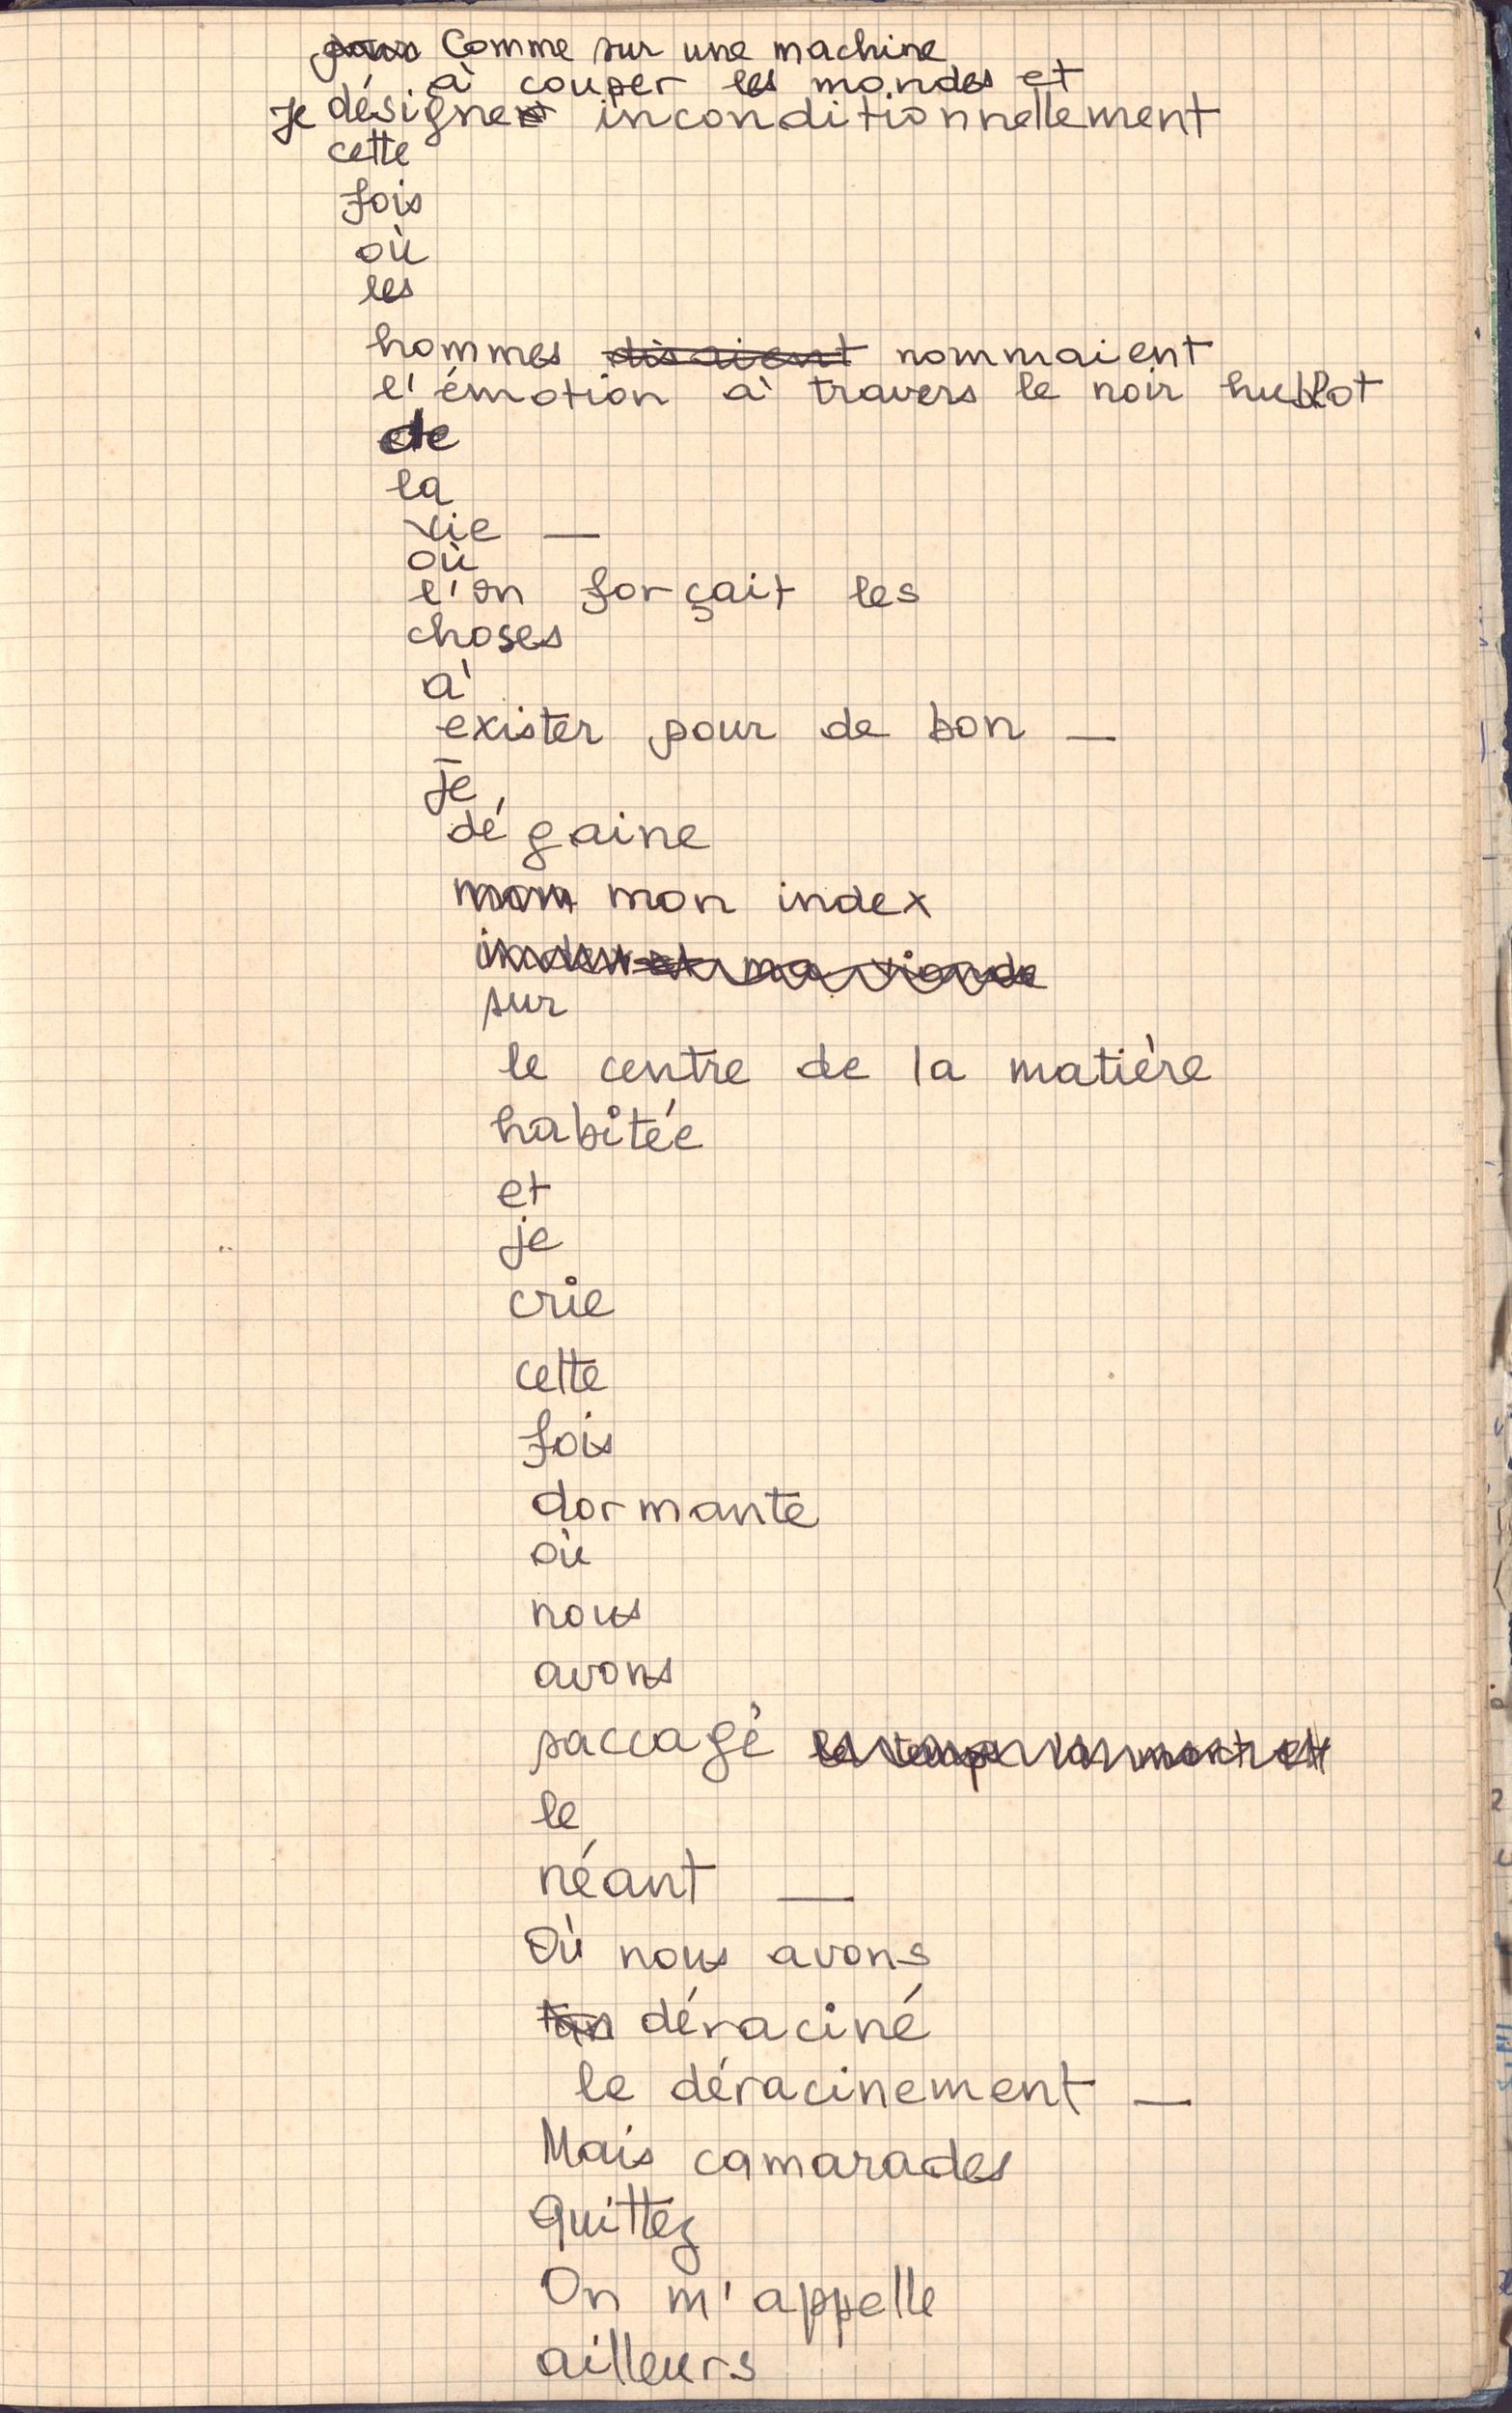 pour Comme sur une machine
à couper les mondes et
Je désigne inconditionnellement
cette
fois
où
les
hommes disaient nommaient
l'émotion à travers le noir hublot
de
la
vie —
où
l'on forçait les
choses
à
exister pour de bon —
Je
dégaine
mon mon index
index et ma viande
sur
le centre de la matière
habitée
et
je
crie
cette
fois
dormante
où
nous
avons
saccagé le temps la mort et
le
néant —
Où nous avons
déraciné
le déracinement —
Mais camarades
Quittez
On m'appelle
ailleurs